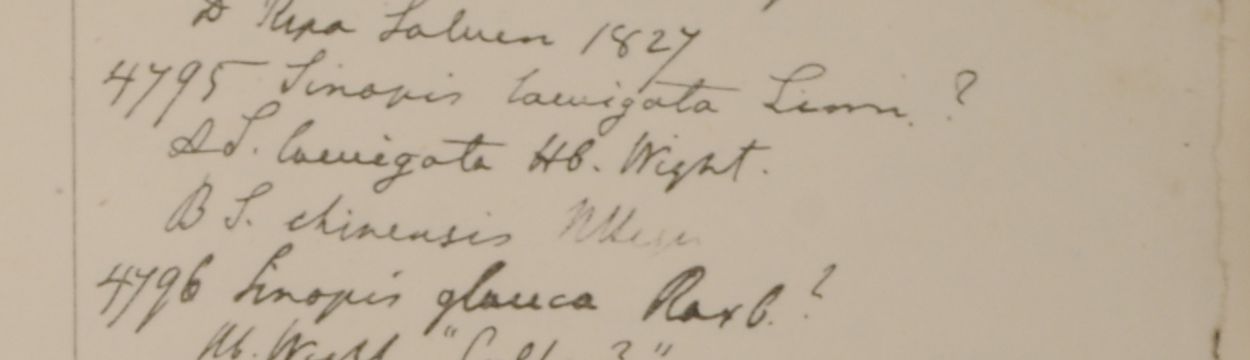 D Ripa Saluen 1827
4795 Sinapis laevigata Linn. ?
A S. laevigata Hb. Wight.
B S. chinensis
4796 Sinapis glauca Roxb. ?
Hb. Wight